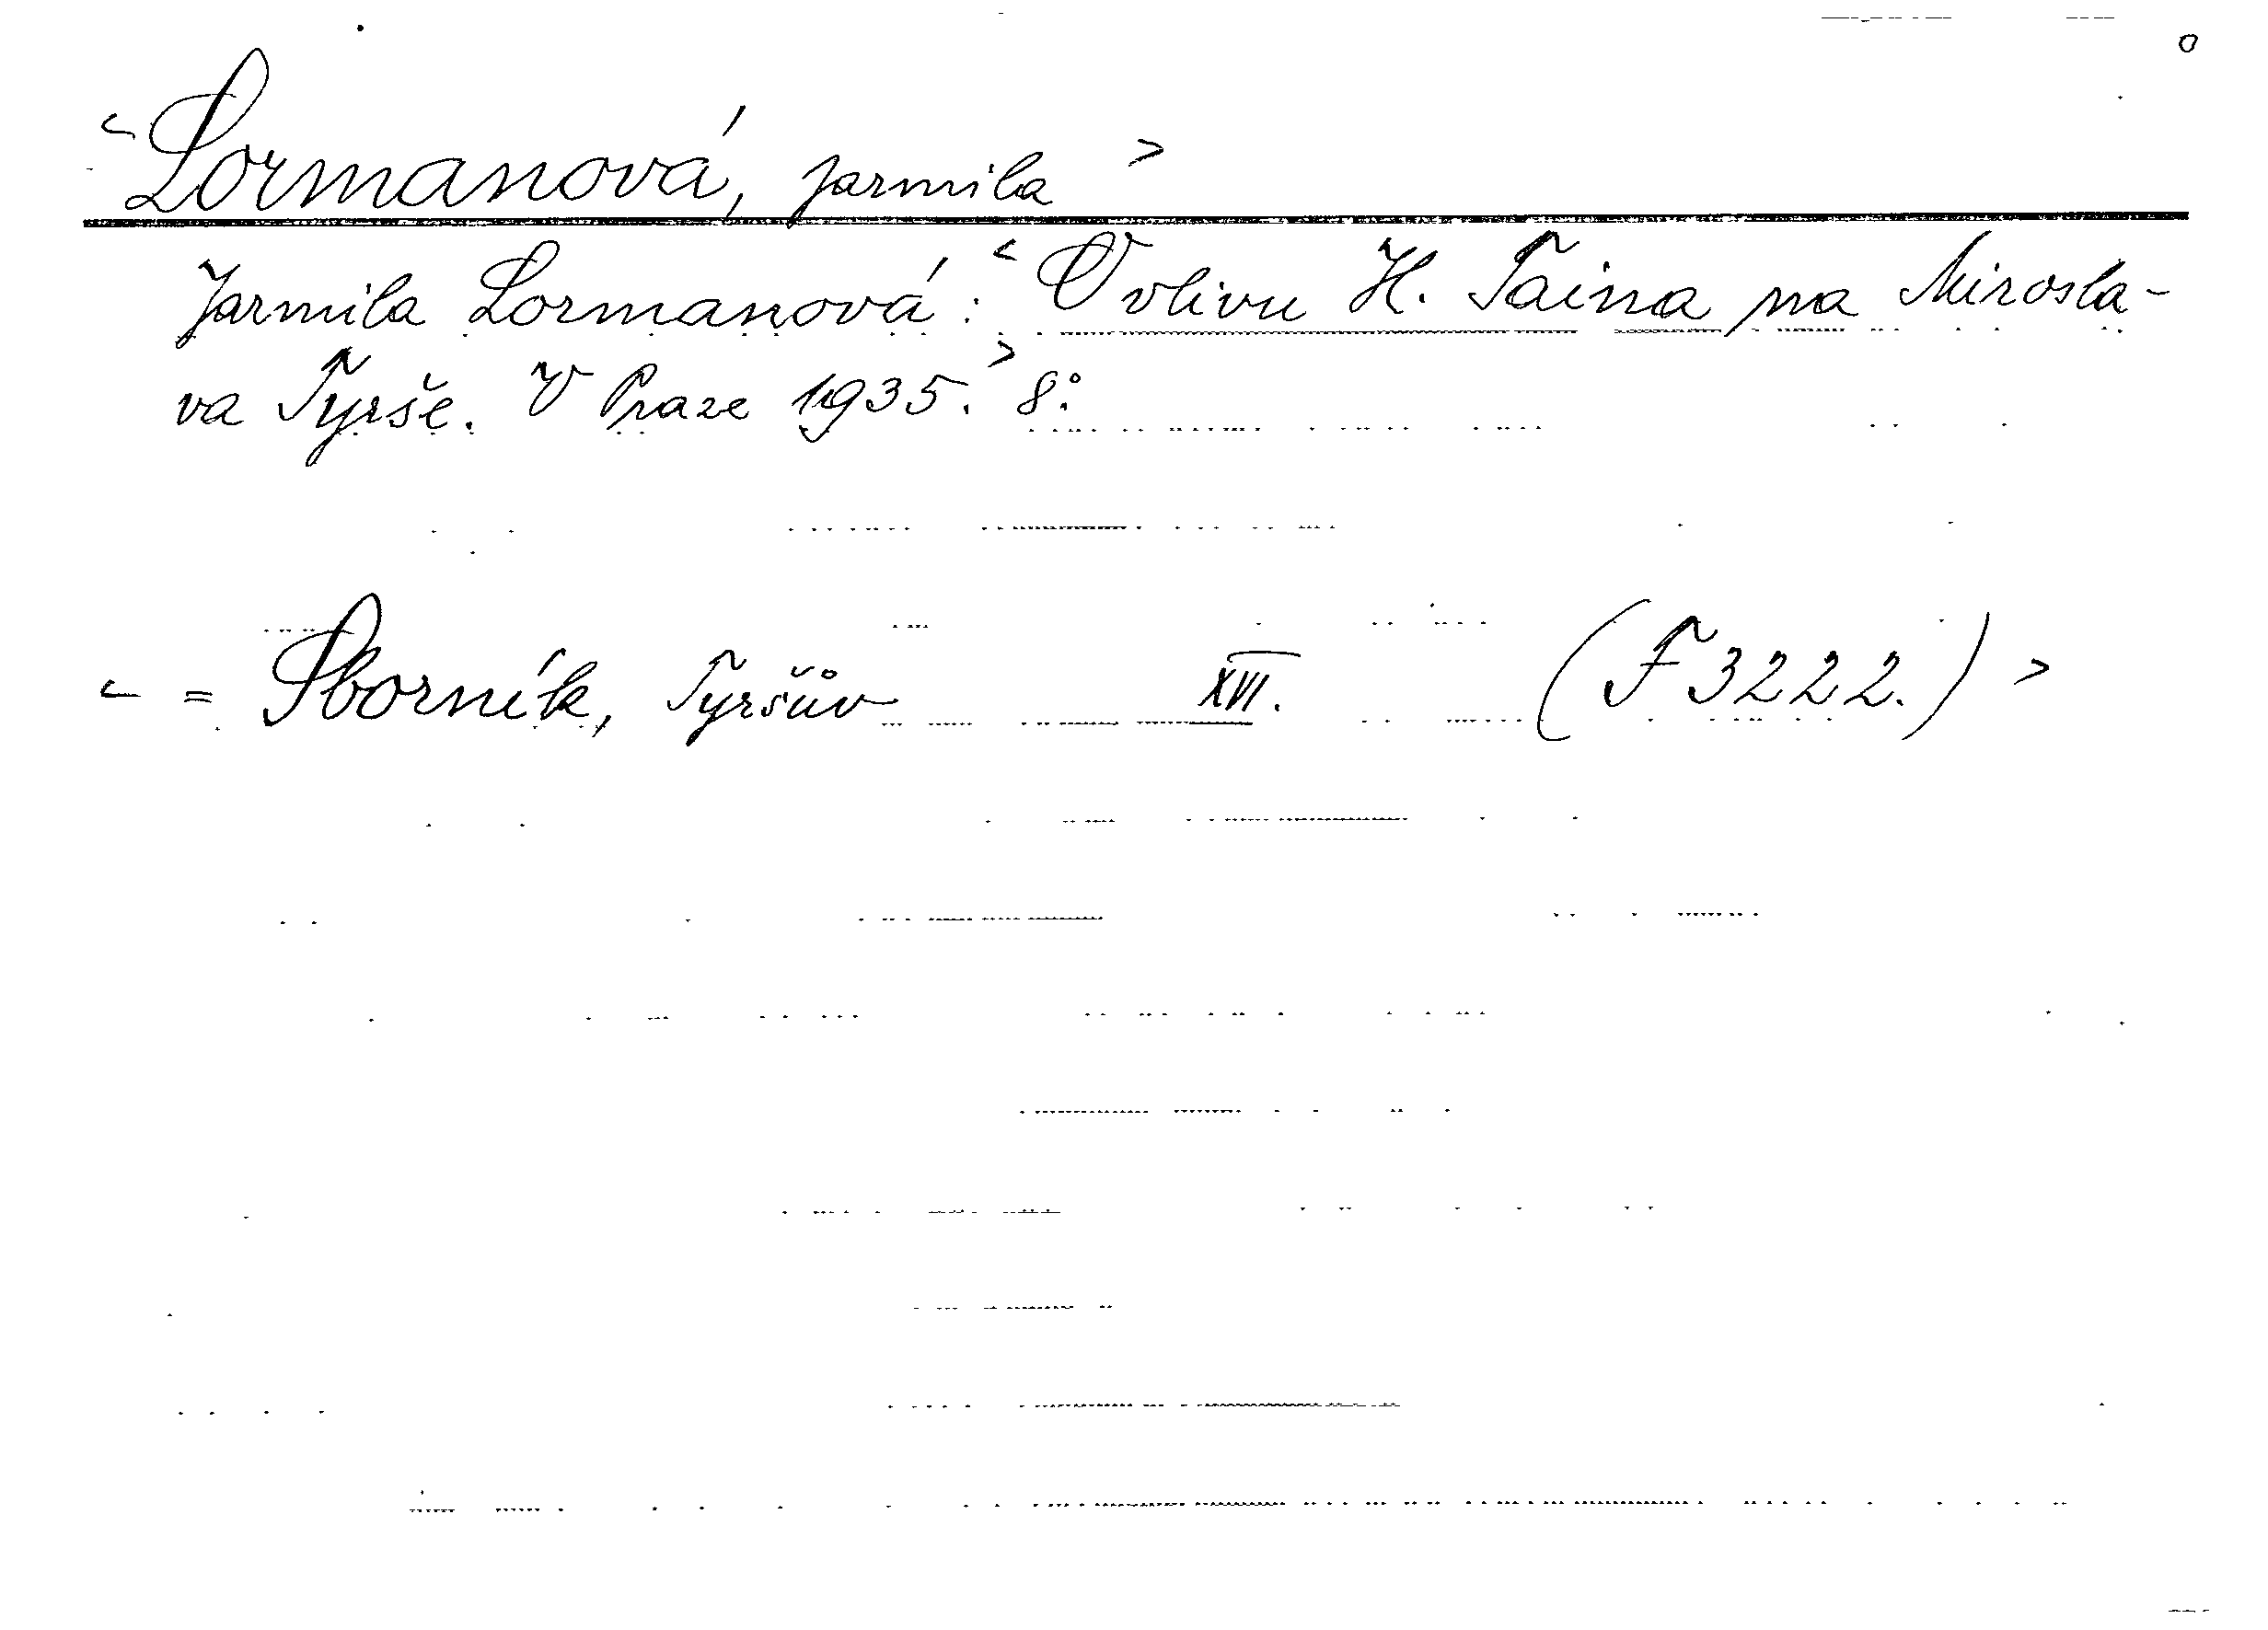 <Lormanová, Jarmila>
Jarmila Lormanová: <O vlivu H. Taina na Mirosla-
va Tyrše. V Praze 1935.> 8°.
< = Sborník, Tyršův XVI. (F 3222.) >